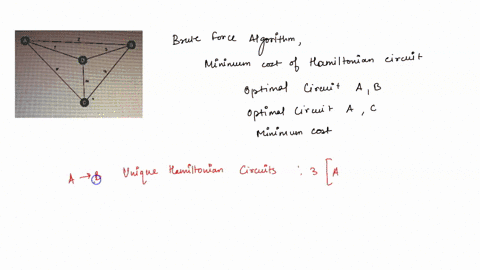 Brute Force Algorithm,
Minimum cost of Hamiltonian circuit
Optimal Circuit A, B
Optimal Circuit A, C
Minimum cost
A → B Unique Hamiltonian Circuits : 3 [ A
A
B
D